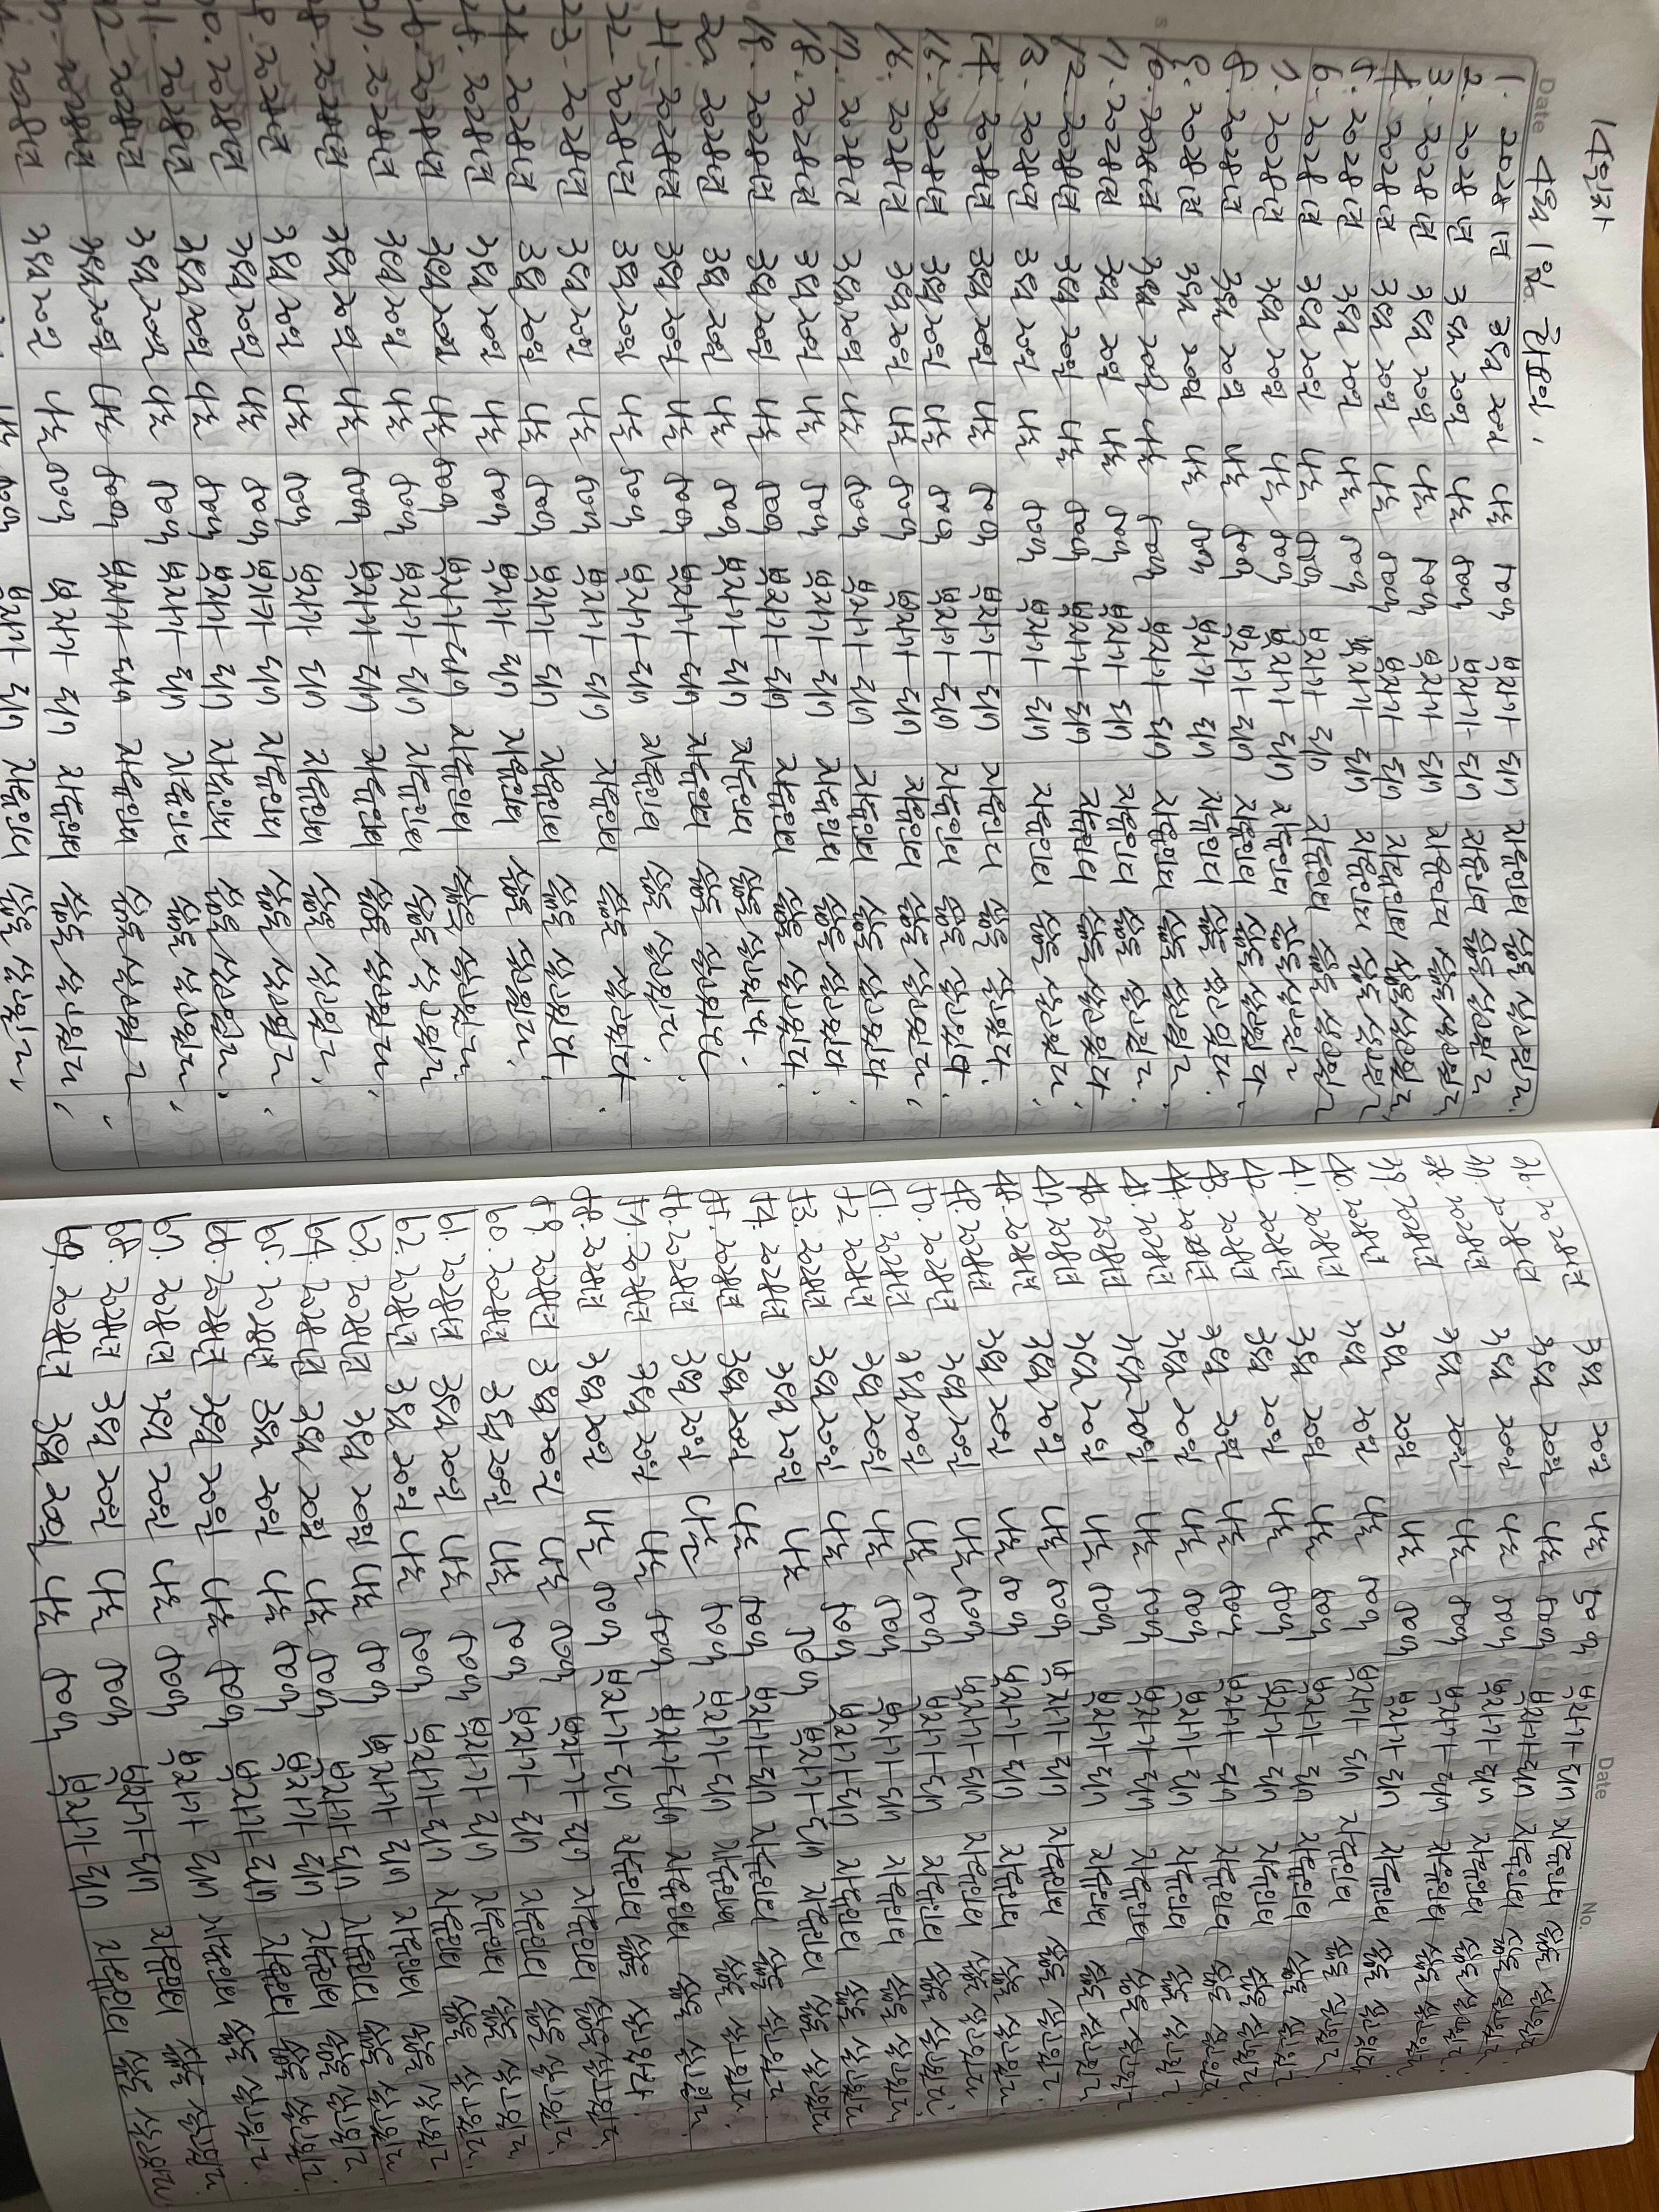 14일차
Date 4월 1일 화요일.
1. 2028년 3월 20일 나는 500억 부자가 되어 자유인의 삶을 살고있다.
2. 2028년 3월 20일 나는 500억 부자가 되어 자유인의 삶을 살고있다.
3. 2028년 3월 20일 나는 500억 부자가 되어 자유인의 삶을 살고있다.
4. 2028년 3월 20일 나는 500억 부자가 되어 자유인의 삶을 살고있다.
5. 2028년 3월 20일 나는 500억 부자가 되어 자유인의 삶을 살고있다.
6. 2028년 3월 20일 나는 500억 부자가 되어 자유인의 삶을 살고있다.
7. 2028년 3월 20일 나는 500억 부자가 되어 자유인의 삶을 살고있다.
8. 2028년 3월 20일 나는 500억 부자가 되어 자유인의 삶을 살고있다.
9. 2028년 3월 20일 나는 500억 부자가 되어 자유인의 삶을 살고있다.
10. 2028년 3월 20일 나는 500억 부자가 되어 자유인의 삶을 살고있다.
11. 2028년 3월 20일 나는 500억 부자가 되어 자유인의 삶을 살고있다.
12. 2028년 3월 20일 나는 500억 부자가 되어 자유인의 삶을 살고있다.
13. 2028년 3월 20일 나는 500억 부자가 되어 자유인의 삶을 살고있다.
14. 2028년 3월 20일 나는 500억 부자가 되어 자유인의 삶을 살고있다.
15. 2028년 3월 20일 나는 500억 부자가 되어 자유인의 삶을 살고있다.
16. 2028년 3월 20일 나는 500억 부자가 되어 자유인의 삶을 살고있다.
17. 2028년 3월 20일 나는 500억 부자가 되어 자유인의 삶을 살고있다.
18. 2028년 3월 20일 나는 500억 부자가 되어 자유인의 삶을 살고있다.
19. 2028년 3월 20일 나는 500억 부자가 되어 자유인의 삶을 살고있다.
20. 2028년 3월 20일 나는 500억 부자가 되어 자유인의 삶을 살고있다.
21. 2028년 3월 20일 나는 500억 부자가 되어 자유인의 삶을 살고있다.
22. 2028년 3월 20일 나는 500억 부자가 되어 자유인의 삶을 살고있다.
23. 2028년 3월 20일 나는 500억 부자가 되어 자유인의 삶을 살고있다.
24. 2028년 3월 20일 나는 500억 부자가 되어 자유인의 삶을 살고있다.
25. 2028년 3월 20일 나는 500억 부자가 되어 자유인의 삶을 살고있다.
26. 2028년 3월 20일 나는 500억 부자가 되어 자유인의 삶을 살고있다.
27. 2028년 3월 20일 나는 500억 부자가 되어 자유인의 삶을 살고있다.
28. 2028년 3월 20일 나는 500억 부자가 되어 자유인의 삶을 살고있다.
29. 2028년 3월 20일 나는 500억 부자가 되어 자유인의 삶을 살고있다.
30. 2028년 3월 20일 나는 500억 부자가 되어 자유인의 삶을 살고있다.
31. 2028년 3월 20일 나는 500억 부자가 되어 자유인의 삶을 살고있다.
32. 2028년 3월 20일 나는 500억 부자가 되어 자유인의 삶을 살고있다.
2028년 3월 20일 나는 500억 부자가 되어 자유인의 삶을 살고있다.
2028년 3월 20일 나는 500억 부자가 되어 자유인의 삶을 살고있다.
나는 500억 부자가 되어 자유인의 삶을 살고있다.
Date No.
36. 2028년 3월 20일 나는 500억 부자가 되어 자유인의 삶을 살고있다.
37. 2028년 3월 20일 나는 500억 부자가 되어 자유인의 삶을 살고있다.
38. 2028년 3월 20일 나는 500억 부자가 되어 자유인의 삶을 살고있다.
39. 2028년 3월 20일 나는 500억 부자가 되어 자유인의 삶을 살고있다.
40. 2028년 3월 20일 나는 500억 부자가 되어 자유인의 삶을 살고있다.
41. 2028년 3월 20일 나는 500억 부자가 되어 자유인의 삶을 살고있다.
42. 2028년 3월 20일 나는 500억 부자가 되어 자유인의 삶을 살고있다.
43. 2028년 3월 20일 나는 500억 부자가 되어 자유인의 삶을 살고있다.
44. 2028년 3월 20일 나는 500억 부자가 되어 자유인의 삶을 살고있다.
45. 2028년 3월 20일 나는 500억 부자가 되어 자유인의 삶을 살고있다.
46. 2028년 3월 20일 나는 500억 부자가 되어 자유인의 삶을 살고있다.
47. 2028년 3월 20일 나는 500억 부자가 되어 자유인의 삶을 살고있다.
48. 2028년 3월 20일 나는 500억 부자가 되어 자유인의 삶을 살고있다.
49. 2028년 3월 20일 나는 500억 부자가 되어 자유인의 삶을 살고있다.
50. 2028년 3월 20일 나는 500억 부자가 되어 자유인의 삶을 살고있다.
51. 2028년 3월 20일 나는 500억 부자가 되어 자유인의 삶을 살고있다.
52. 2028년 3월 20일 나는 500억 부자가 되어 자유인의 삶을 살고있다.
53. 2028년 3월 20일 나는 500억 부자가 되어 자유인의 삶을 살고있다.
54. 2028년 3월 20일 나는 500억 부자가 되어 자유인의 삶을 살고있다.
55. 2028년 3월 20일 나는 500억 부자가 되어 자유인의 삶을 살고있다.
56. 2028년 3월 20일 나는 500억 부자가 되어 자유인의 삶을 살고있다.
57. 2028년 3월 20일 나는 500억 부자가 되어 자유인의 삶을 살고있다.
58. 2028년 3월 20일 나는 500억 부자가 되어 자유인의 삶을 살고있다.
59. 2028년 3월 20일 나는 500억 부자가 되어 자유인의 삶을 살고있다.
60. 2028년 3월 20일 나는 500억 부자가 되어 자유인의 삶을 살고있다.
61. 2028년 3월 20일 나는 500억 부자가 되어 자유인의 삶을 살고있다.
62. 2028년 3월 20일 나는 500억 부자가 되어 자유인의 삶을 살고있다.
63. 2028년 3월 20일 나는 500억 부자가 되어 자유인의 삶을 살고있다.
64. 2028년 3월 20일 나는 500억 부자가 되어 자유인의 삶을 살고있다.
65. 2028년 3월 20일 나는 500억 부자가 되어 자유인의 삶을 살고있다.
66. 2028년 3월 20일 나는 500억 부자가 되어 자유인의 삶을 살고있다.
67. 2028년 3월 20일 나는 500억 부자가 되어 자유인의 삶을 살고있다.
68. 2028년 3월 20일 나는 500억 부자가 되어 자유인의 삶을 살고있다.
69. 2028년 3월 20일 나는 500억 부자가 되어 자유인의 삶을 살고있다.